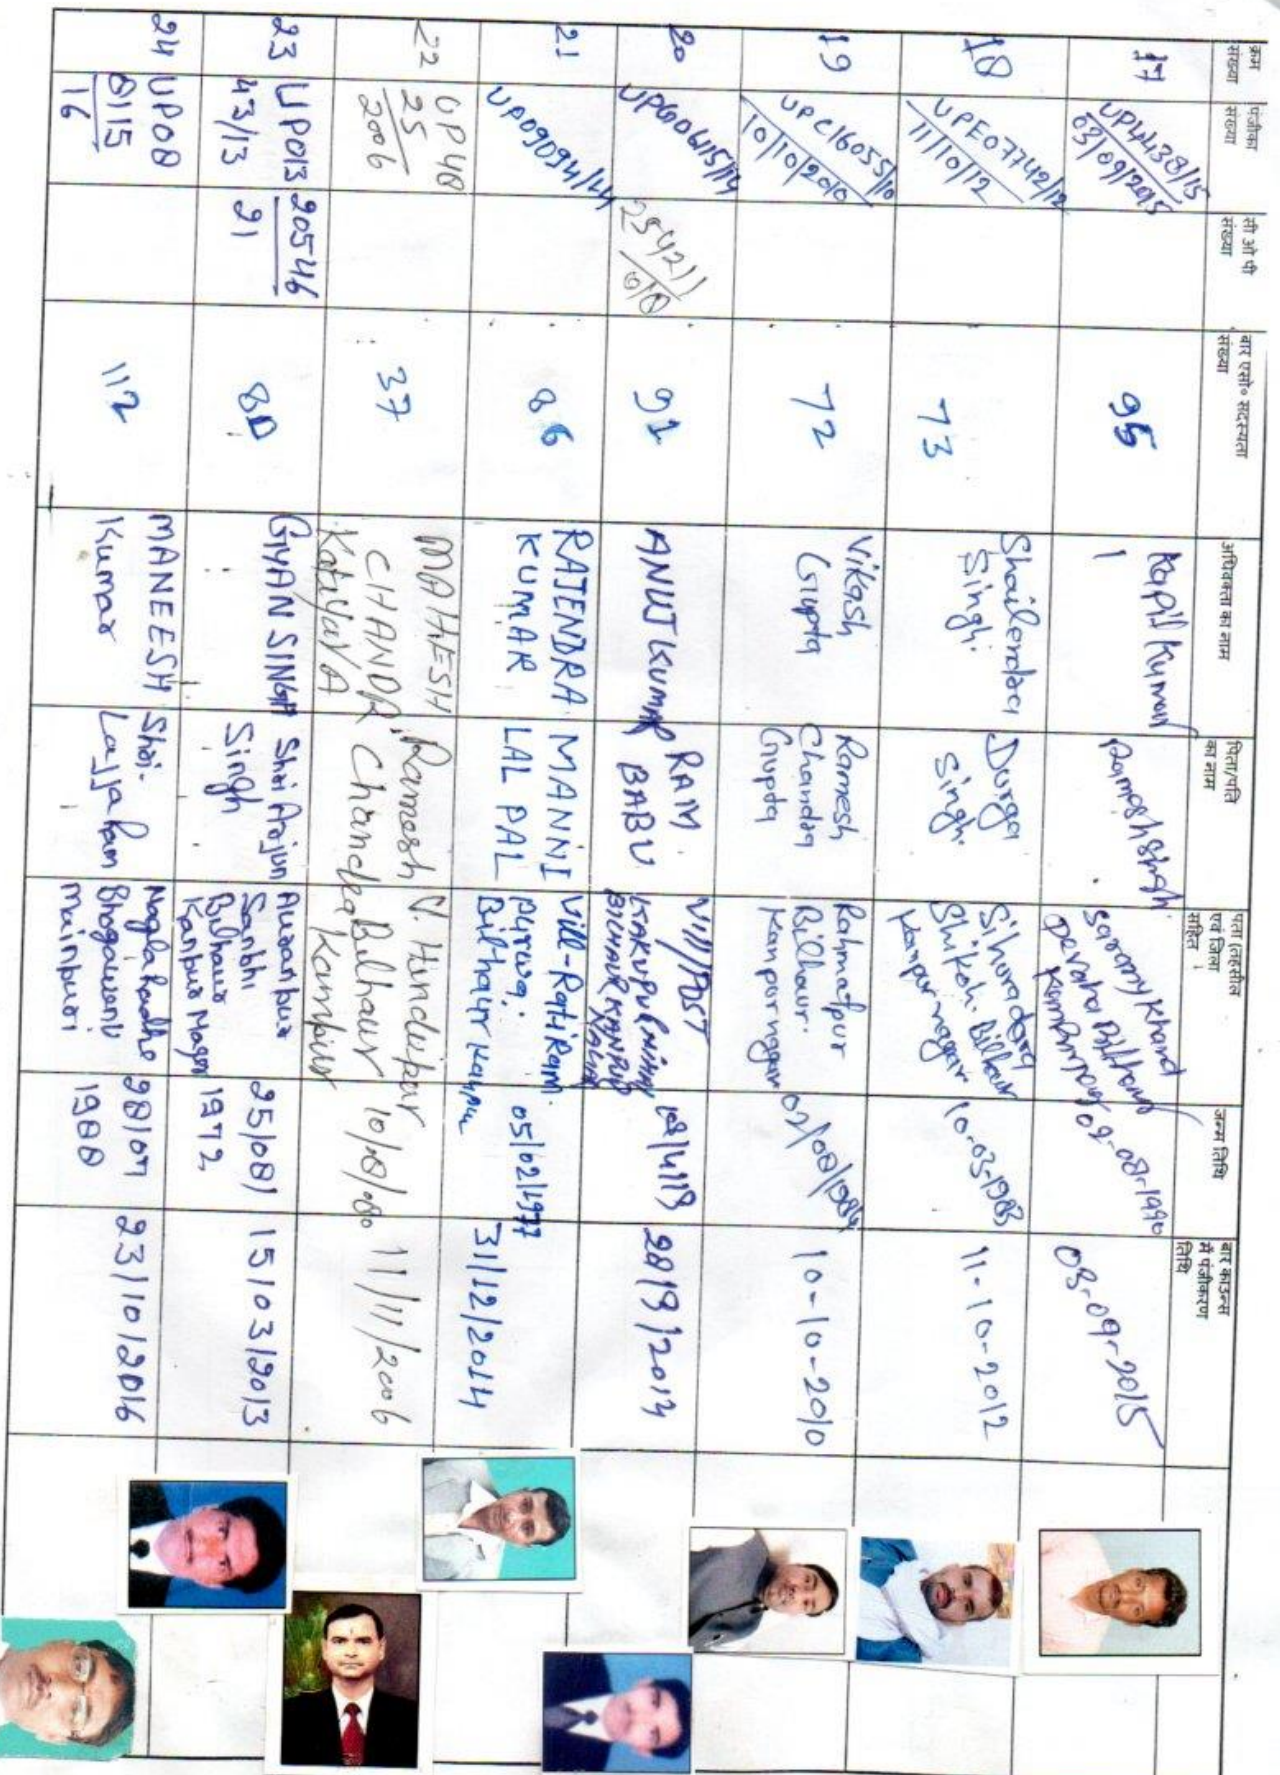 क्रम
संख्या
पंजीका
संख्या
सी ओ पी
संख्या
बार एसो० सदस्यता
संख्या
अधिवक्ता का नाम
पिता/पति
का नाम
पता (तहसील
एवं जिला
सहित
जन्म तिथि
बार काउन्स
में पंजीकरण
तिथि
17
UP4438/15
03/09/2015
95
Kapil Kumar
Ramesh Singh
Kanpur
02-08-1990
03-09-2015
18
UPE07742/12
11/10/12
73
Shailendra
Singh.
Durga
Singh.
Sihura dara
Shikoh. Bilhaur
Kanpur nagar
10-03-1983
11-10-2012
19
UPC16055/10
10/10/2010
72
Vikash
Gupta
Ramesh
Chandra
Gupta
Rahmatpur
Bilhaur.
Kanpur nagar
02/08/1984
10-10-2010
20
254211
91
ANUJ KUMAR
RAM
BABU
Vill/POST
BILHAUR KANPUR
21
UP09094/14
86
RAJENDRA
KUMAR
MANNI
LAL PAL
Vill-Ratiram.
purwa.
Bilhaur Kanpur
05/02/1977
31/12/2014
22
UP48
25
2006
37
MAHESH
CHANDR
Katayaya
Ramesh
Chandra
V. Hindupur
Bilhaur
Kanpur
11/11/2006
23
UP013
43/13
20546
21
80
GYAN SINGH
Shri Arjun
Singh
Auranpur
Sanbhi
Bilhaur
Kanpur Nagar
25/08/
1972
15/03/2013
24
UP08
8115
16
112
MANEESH
Kumar
Shri.
Lajja Ram
Nagla kandhe
Bhogawanv
Mainpuri
28/07
1988
23/10/2016